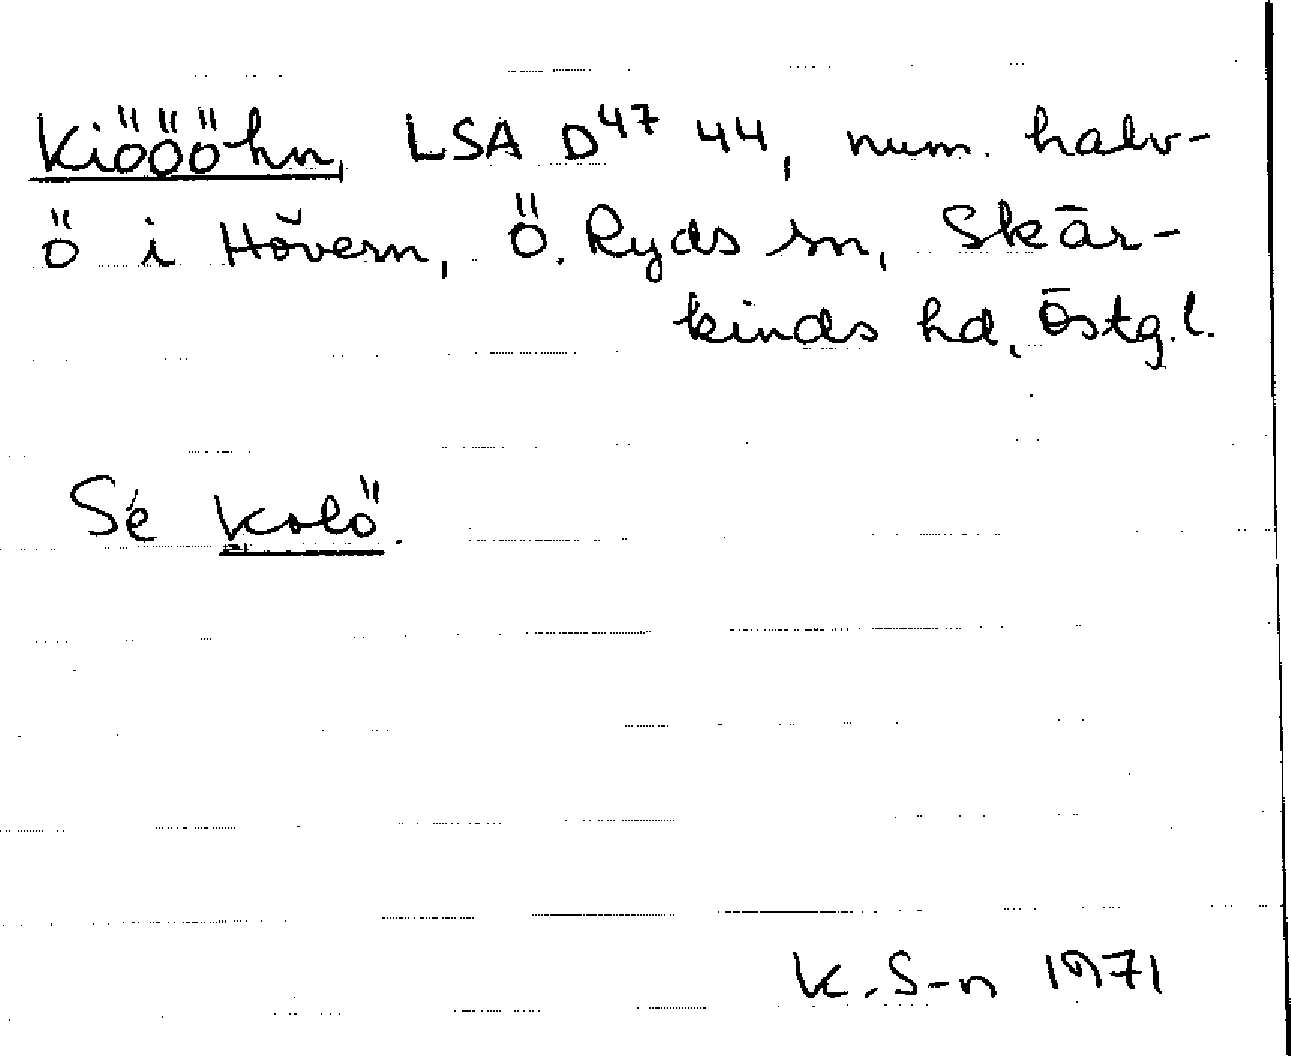 Kiööö̈hn, LSA D⁴⁷ 44, num. halv-
ö i Hövern, Ö. Ryds sn, Skär-
kinds hd, Östg.l.
Se Kolö.
K.S-n 1971